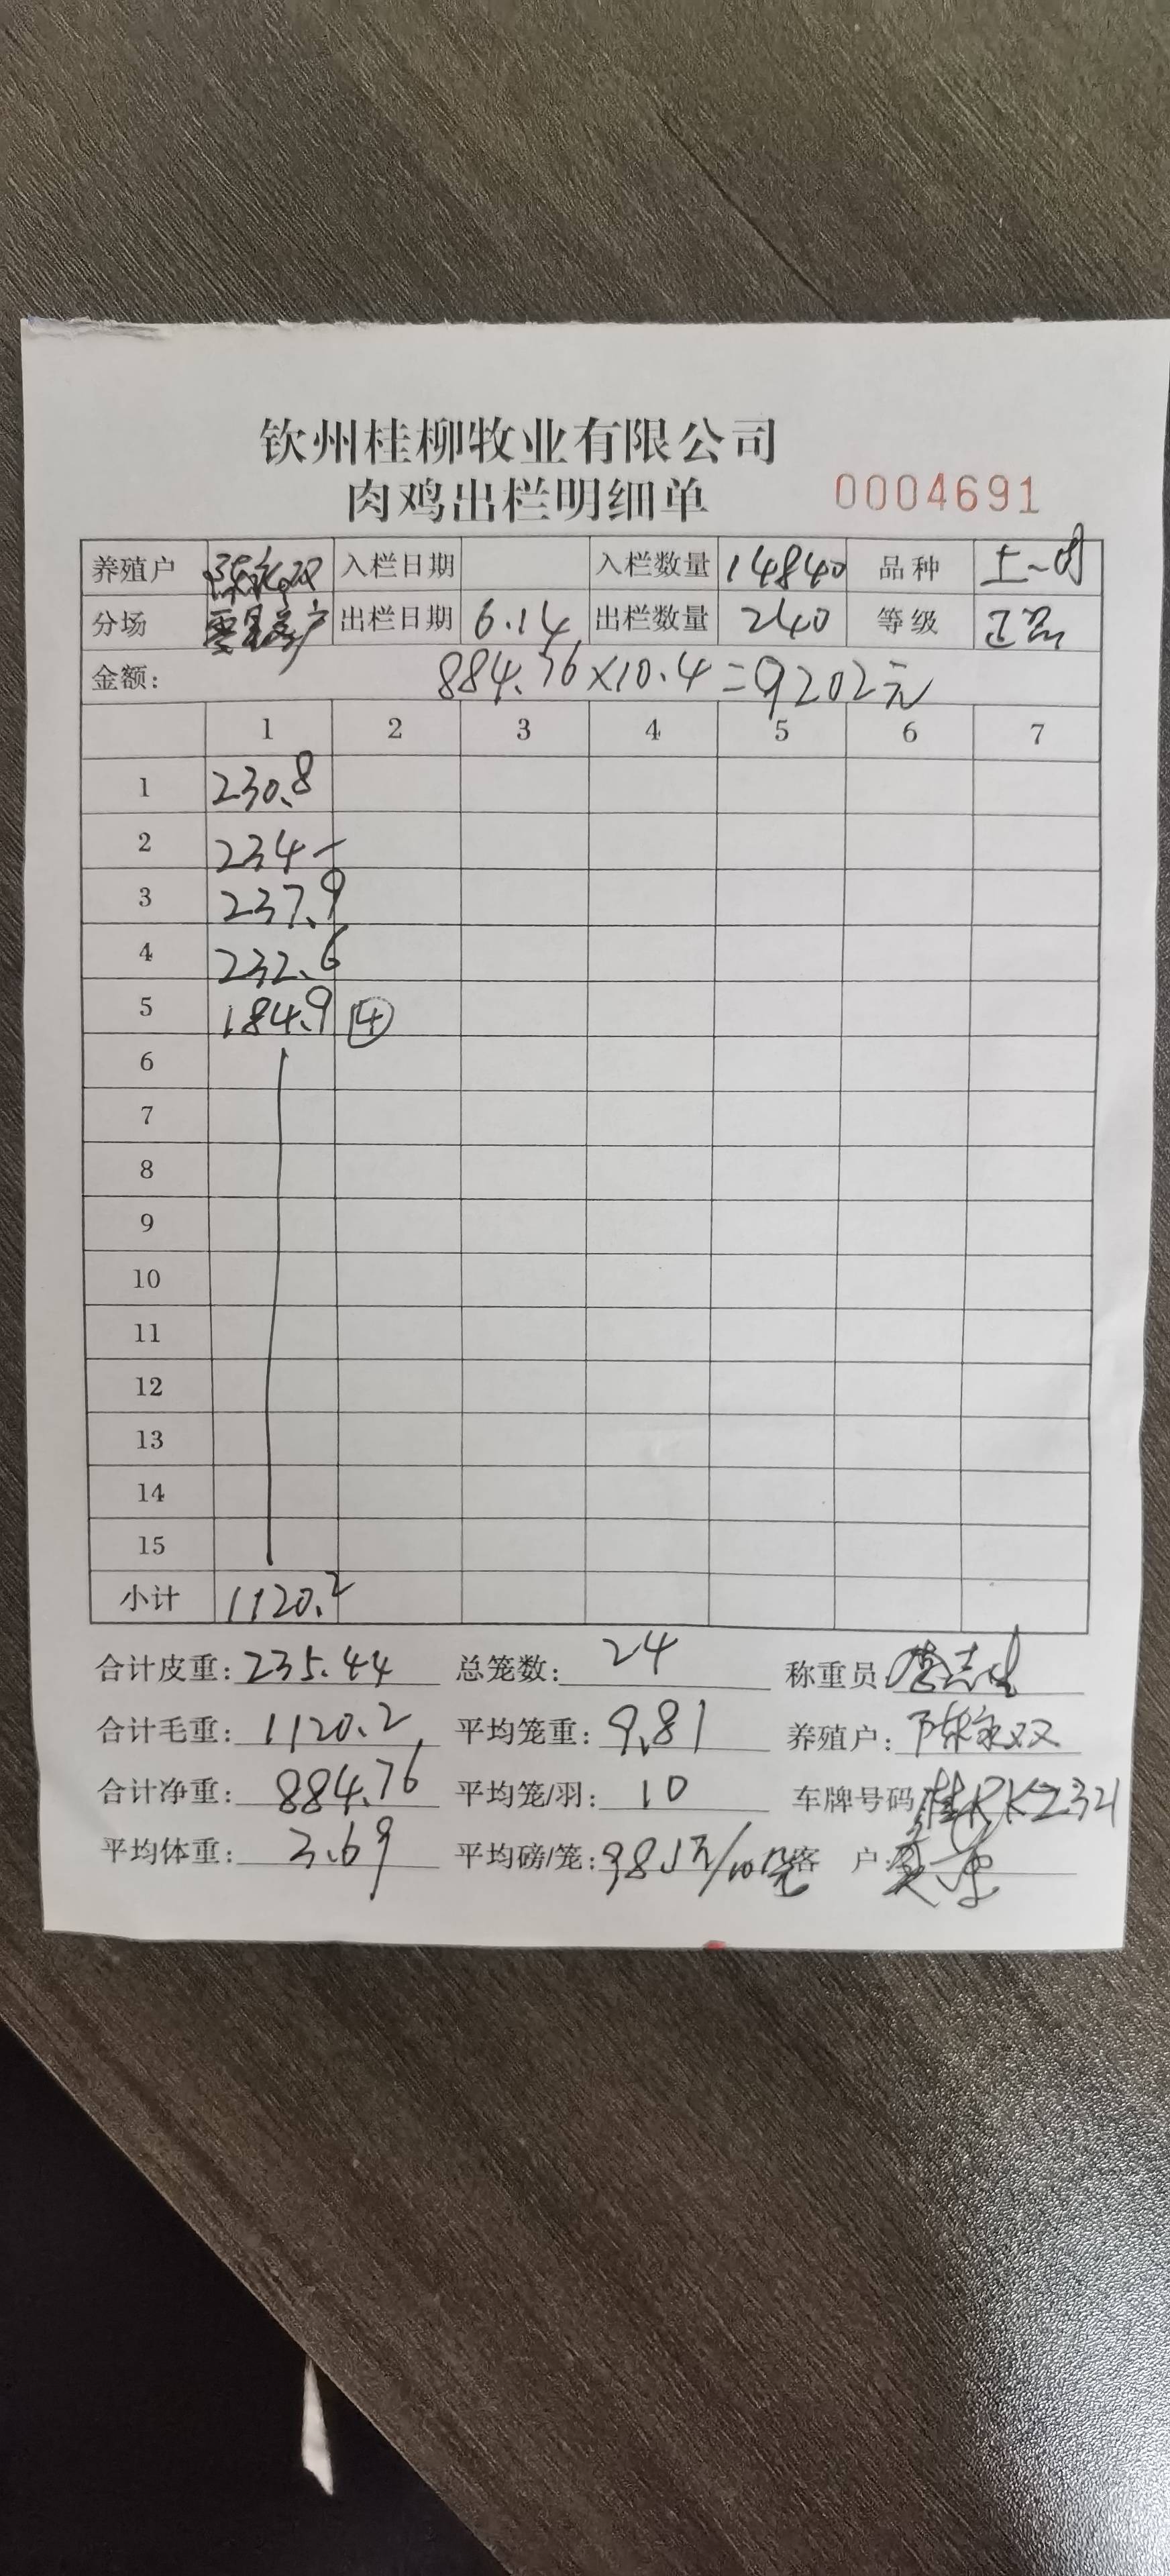 钦州桂柳牧业有限公司
肉鸡出栏明细单 0004691
养殖户 入栏日期 入栏数量 14840 品种 土一
分场 零星客户 出栏日期 6.14 出栏数量 240 等级 正品
金额: 884.76×10.4=9202元
1 2 3 4 5 6 7
1 230.8
2 234-
3 237.9
4 232.6
5 184.9 ④
6
7
8
9
10
11
12
13
14
15
小计 1120.2
合计皮重: 235.44 总笼数: 24 称重员:
合计毛重: 1120.2 平均笼重: 9.81 养殖户: 陈永双
合计净重: 884.76 平均笼/羽: 10 车牌号码: 桂RKZ321
平均体重: 3.69 平均磅/笼: 客 户: